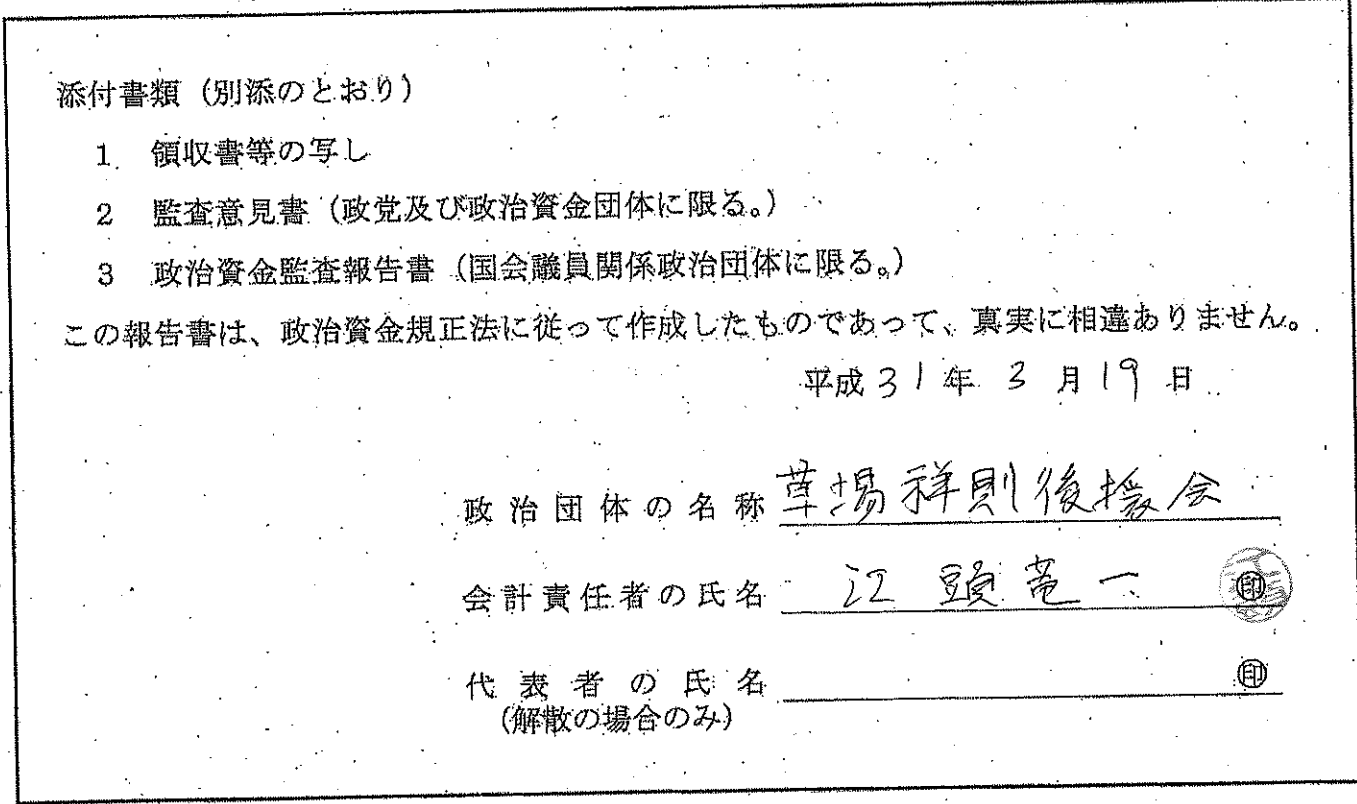 添付書類（別添のとおり）
1 領収書等の写し
2 監査意見書（政党及び政治資金団体に限る。）
3 政治資金監査報告書（国会議員関係政治団体に限る。）
この報告書は、政治資金規正法に従って作成したものであって、真実に相違ありません。
平成31年 3月19日
政治団体の名称 草場祥則後援会
会計責任者の氏名 江頭 一 印
代表者の氏名 印
（解散の場合のみ）